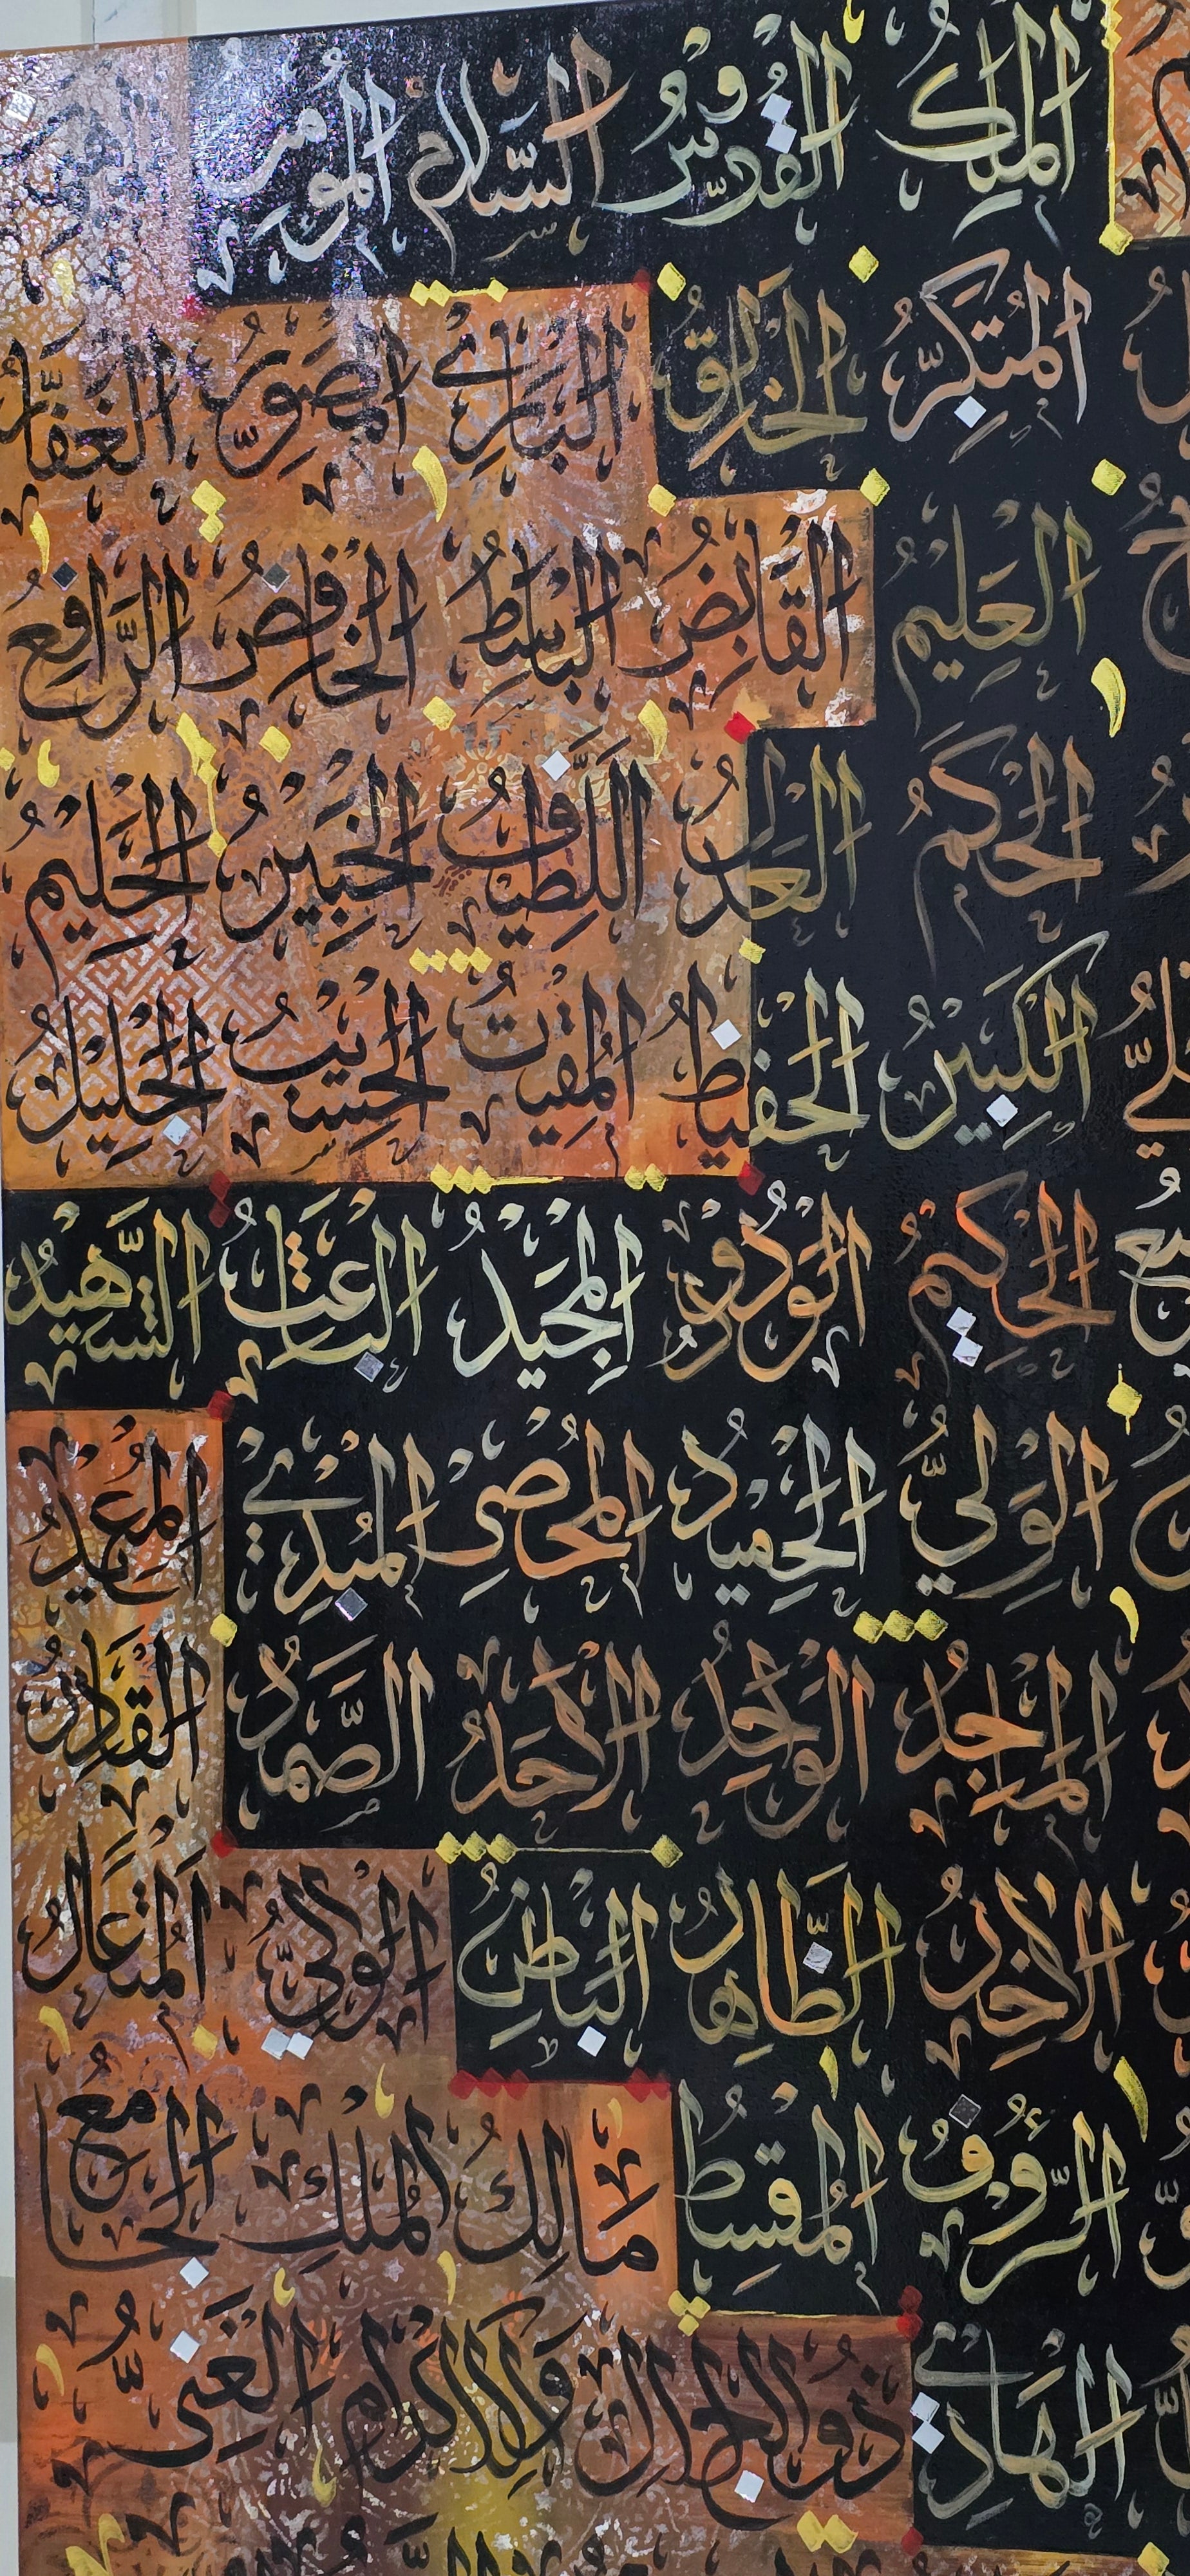 الْمَلِكُ الْقُدُّوسُ السَّلَامُ الْمُؤْمِنُ
الْمُتَكَبِّرُ الْخَالِقُ الْبَارِئُ الْمُصَوِّرُ الْغَفَّارُ
الْعَلِيمُ الْقَابِضُ الْبَاسِطُ الْخَافِضُ الرَّافِعُ
الْحَكَمُ الْعَدْلُ اللَّطِيفُ الْخَبِيْرُ الْحَلِيمُ
الْكَبِيْرُ الْحَفِيظُ الْمُقِيتُ الْحَسِيْبُ الْجَلِيْلُ
الْحَكِيْمُ الْوَدُوْدُ الْمَجِيْدُ الْبَاعِثُ الشَّهِيْدُ
الْوَلِيُّ الْحَمِيْدُ الْمُحْصِى الْمُبْدِئُ الْمُعِيْدُ
الْمَاجِدُ الْوَاحِدُ الْأَحَدُ الصَّمَدُ الْقَادِرُ
الْآخِرُ الظَّاهِرُ الْبَاطِنُ الْوَالِيُ الْمُتَعَالُ
الرَّؤُوفُ الْمُقْسِطُ مَالِكُ الْمُلْكِ الْجَامِعُ
الْهَادِي ذُو الْجَلَالِ وَالْإِكْرَامِ الْغَنِىُّ